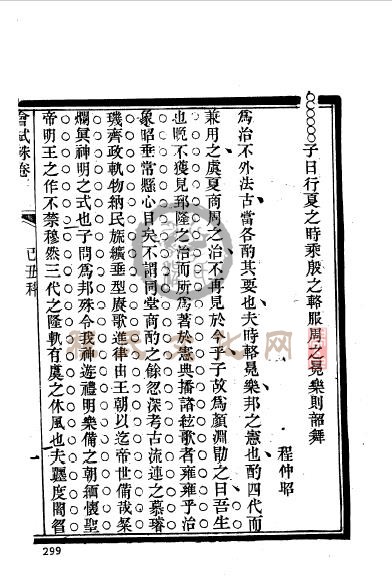 子曰行夏之時乘殷之輅服周之冕樂則韶舞
程仲昭
為治不外法古當各酌其要也夫時輅冕樂邦之憲也酌四代而
兼用之虞夏商周之治不再見於今乎子故為顏淵勖之曰吾生
也晚不獲見郅隆之治而所為著於憲典播諸絃歌者雍雍乎治
象昭垂常懸心目矣不謂同堂商酌之餘忽深考古流連之慕璿
璣齊政軌物納民旒纊垂型賡歌進律由王朝以迄帝世備哉燦
爛真神明之式也子問為邦殊令我神遊禮明樂備之朝緬懷聖
帝明王之作不禁穆然三代之隆軌有虞之休風也夫璽度闇智
會試硃卷
己丑科
299